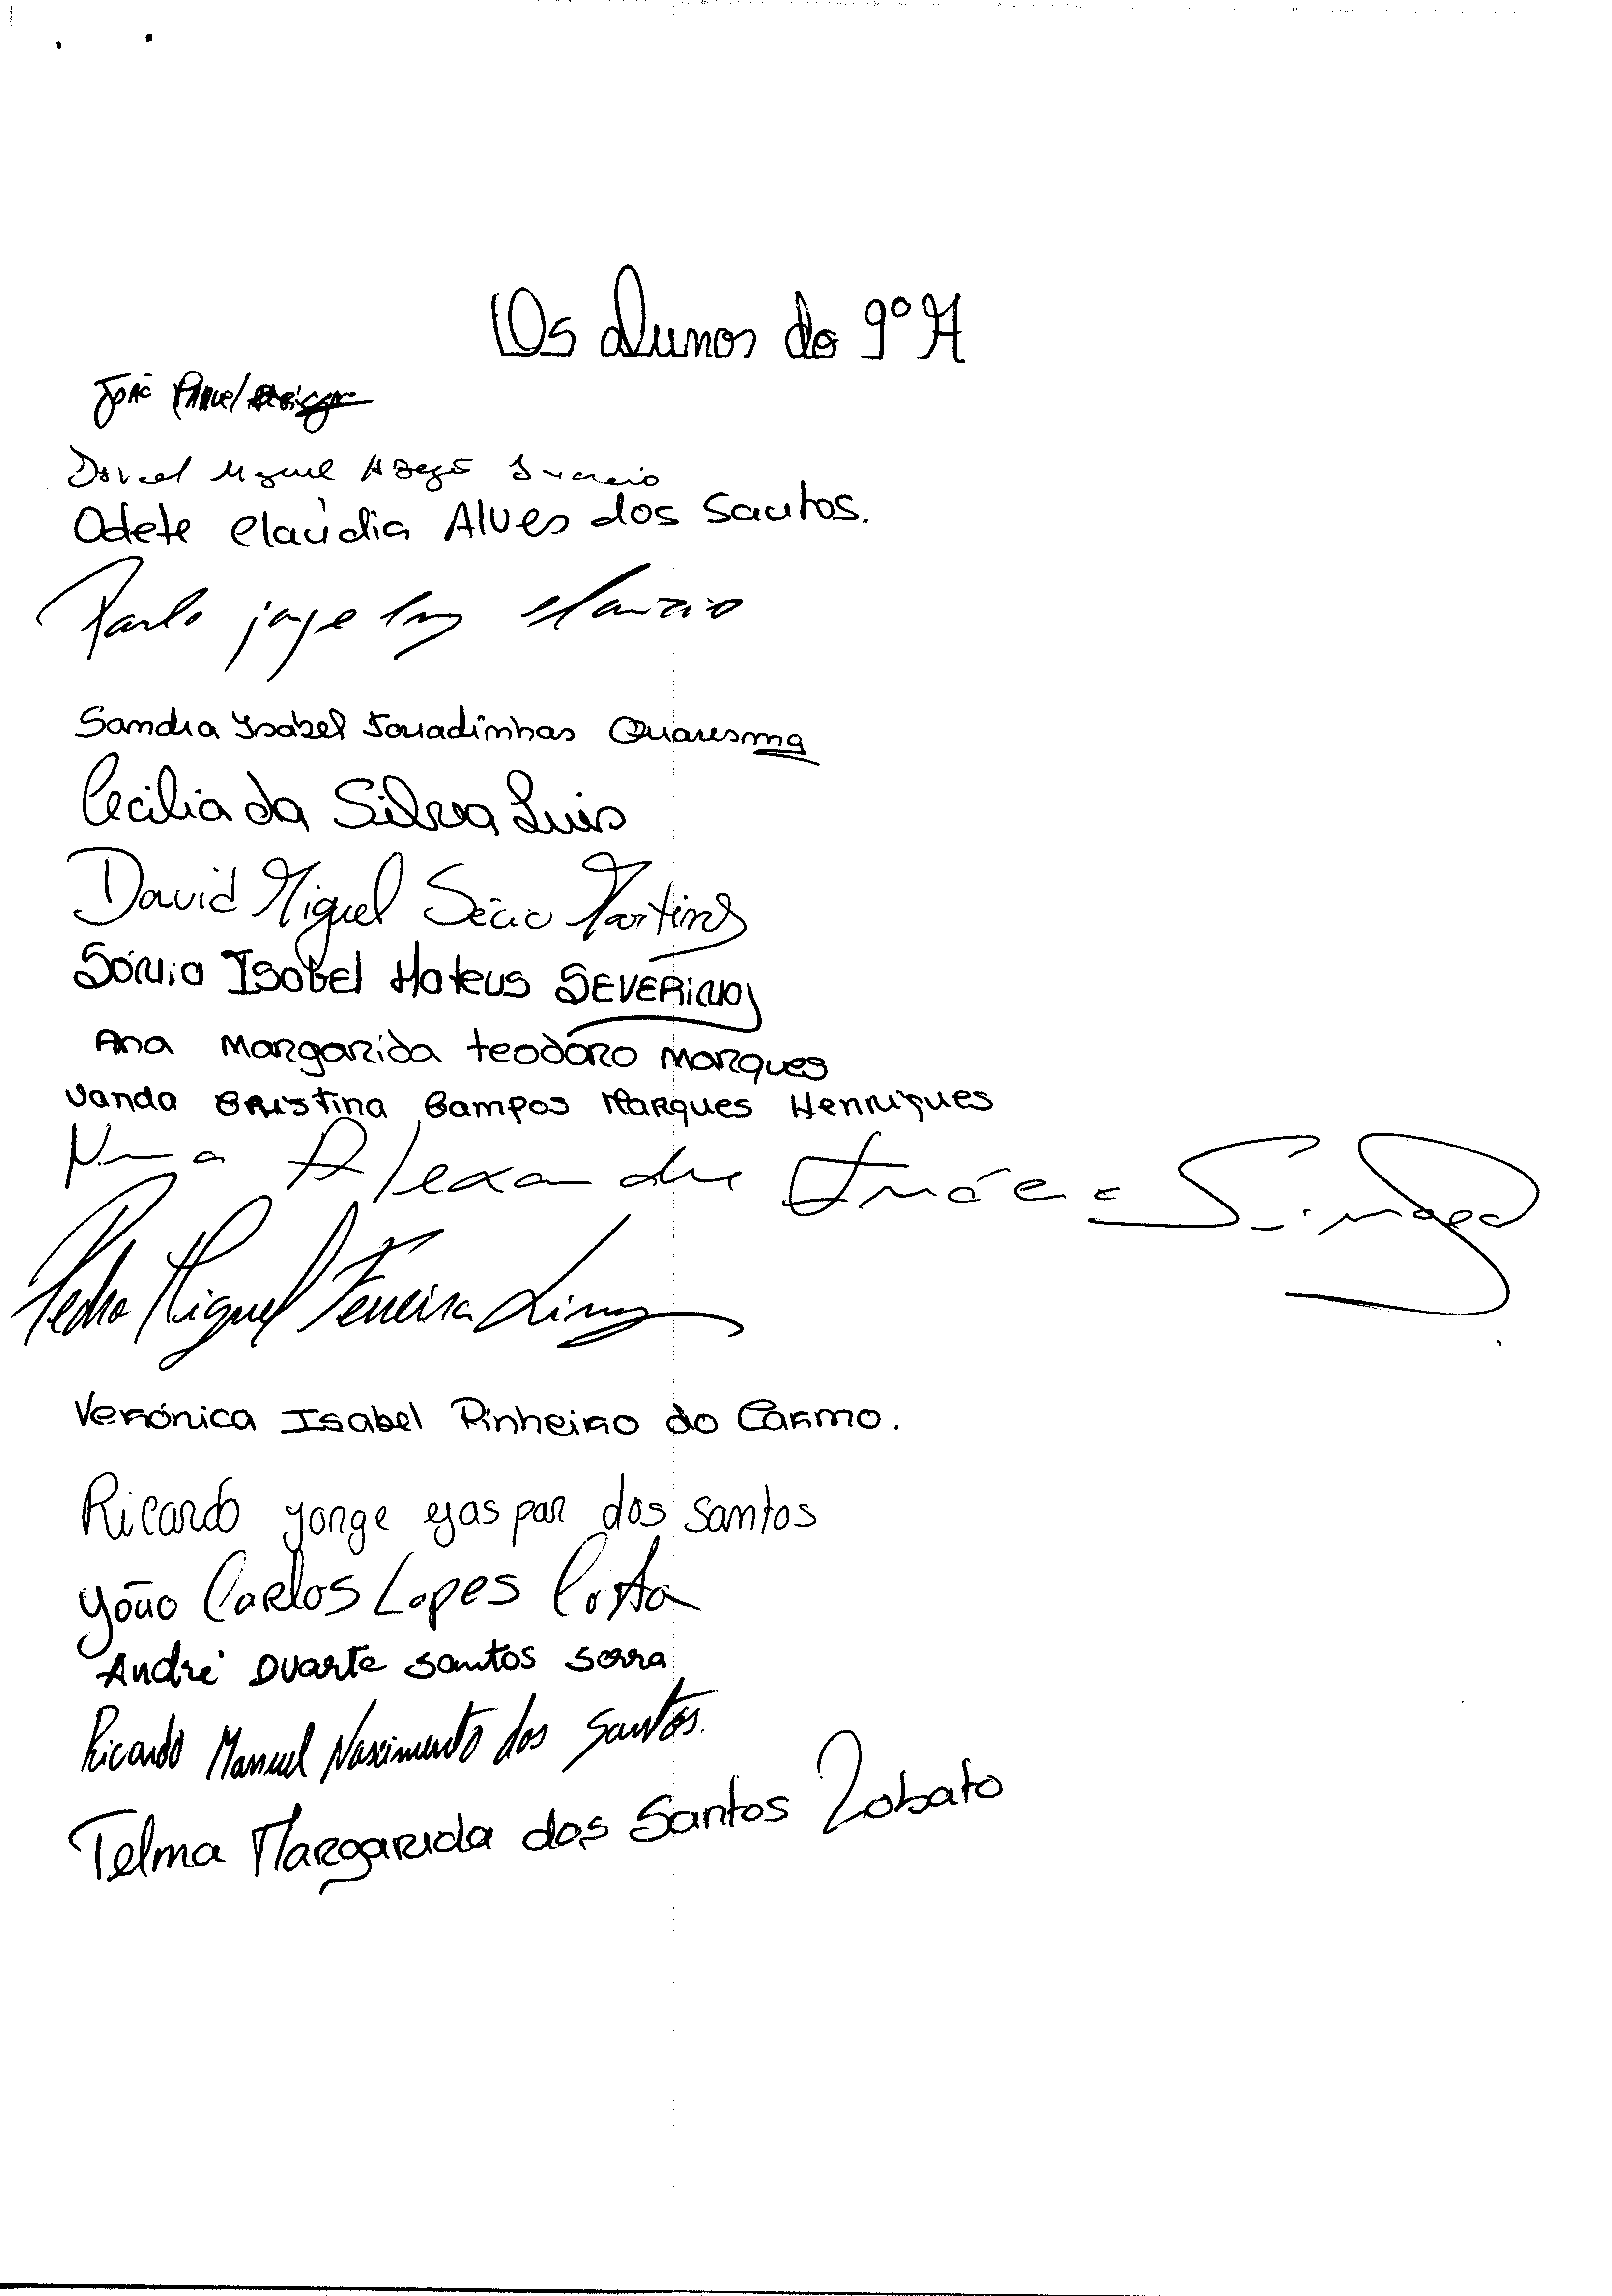 Os Alunos do 9º A
João Manuel
Daniel Miguel Inácio
Odete Claúdia Alves dos Santos.
Paulo jorge
Sandra Isabel Touradinhas Quaresma
Cecilia da Silva Luis
David Miguel Martins
Sónia Isabel Mateus SEVERINO
Ana Margarida teodóro Marques
Vanda Cristina Campos Marques Henriques
Alexandre
Pedro Miguel Ferreira Lima
Verónica Isabel Pinheiro do Carmo.
Ricardo Jorge Gaspar dos Santos
João Carlos Lopes Costa
André Duarte Santos Serra
Ricardo Manuel Nascimento dos Santos.
Telma Margarida dos Santos Lobato